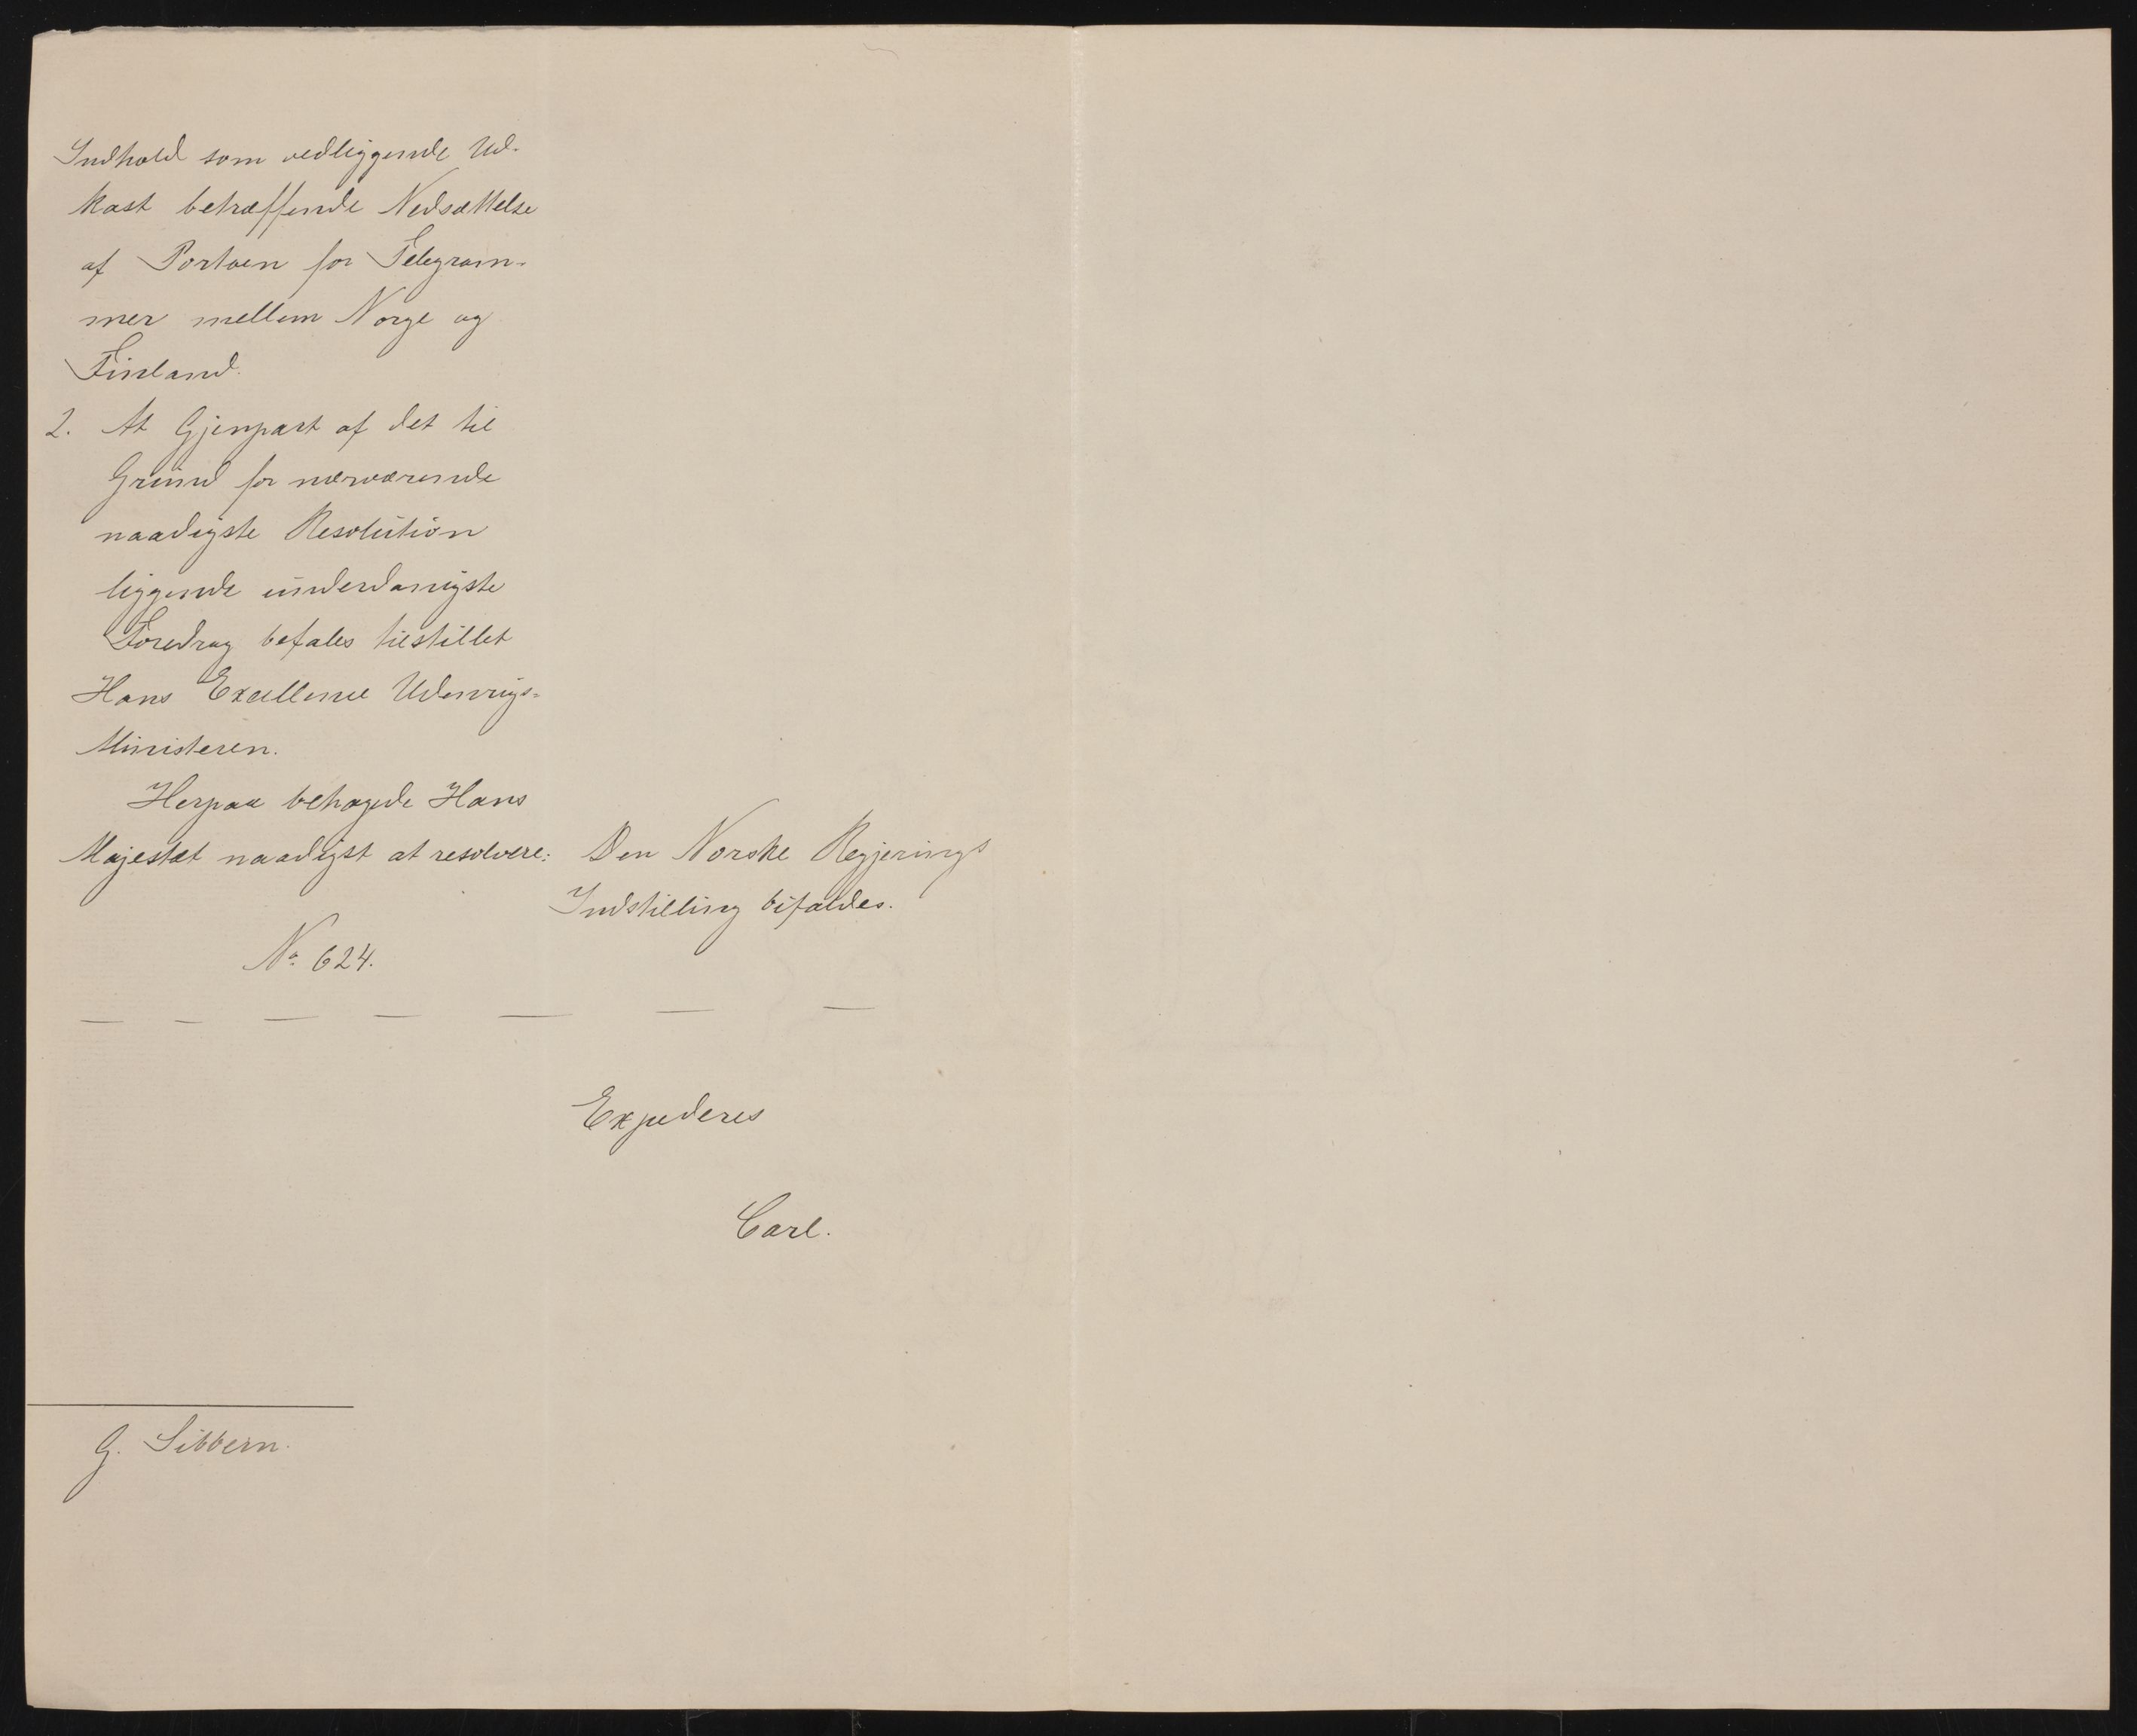 Indhold som vedliggende Ud-
kast betræffende Nedsættelse
af Portoen for Telegram-
mer mellem Norge og
Finland.
2. At Gjenpart af det til
Grund for nærværende
naadigste Resolution
liggende underdanigste
Foredrag befales tilstillet
Hans Excellence Udenrigs-
Ministeren.
Herpaa behagede Hans
Majestæt naadigst at resolvere: Den Norske Regjerings
Indstilling bifaldes.
No. 624.
Expederes
Carl.
G. Sibbern.